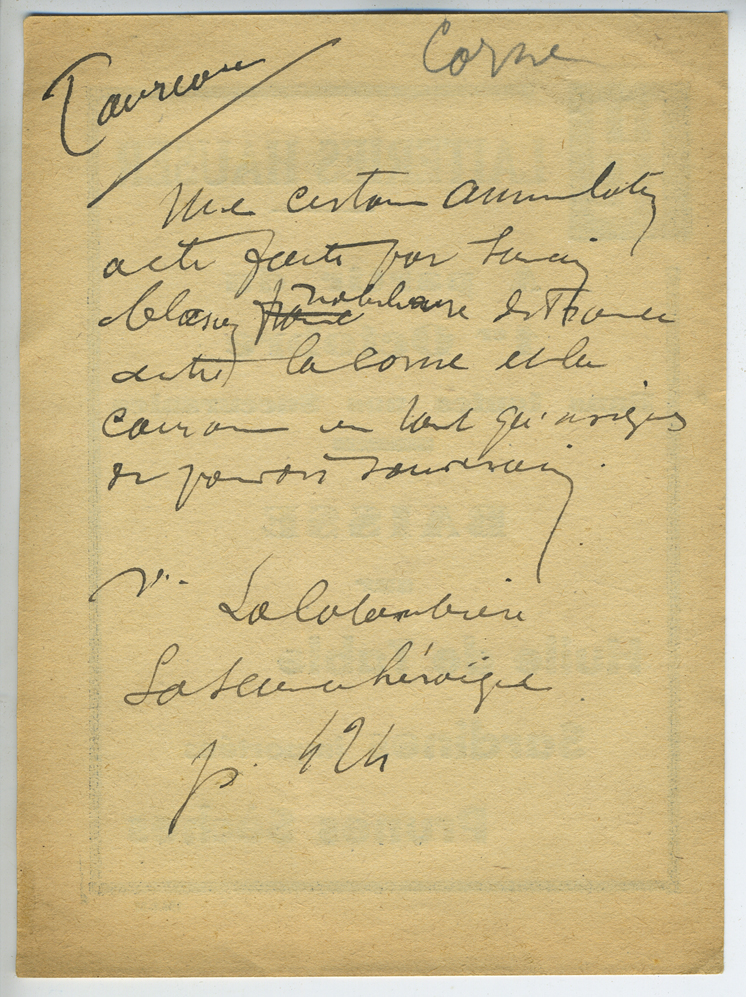 Corne
Taureau
Une certaine assimilation
a été faite par
blason nobiliaire de France
entre la corne et la
couronne en tant qu'insignes
de pouvoir souverain.
V.
La Colombière
La Science héroïque
p. 424